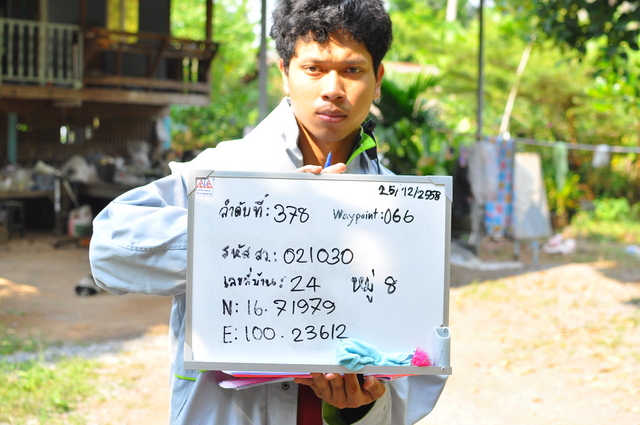 25/12/2558
ลำดับที่: 378 Waypoint: 066
รหัส สว.: 021030
เลขที่บ้าน: 24 หมู่ 8
N: 16.71979
E: 100.23612